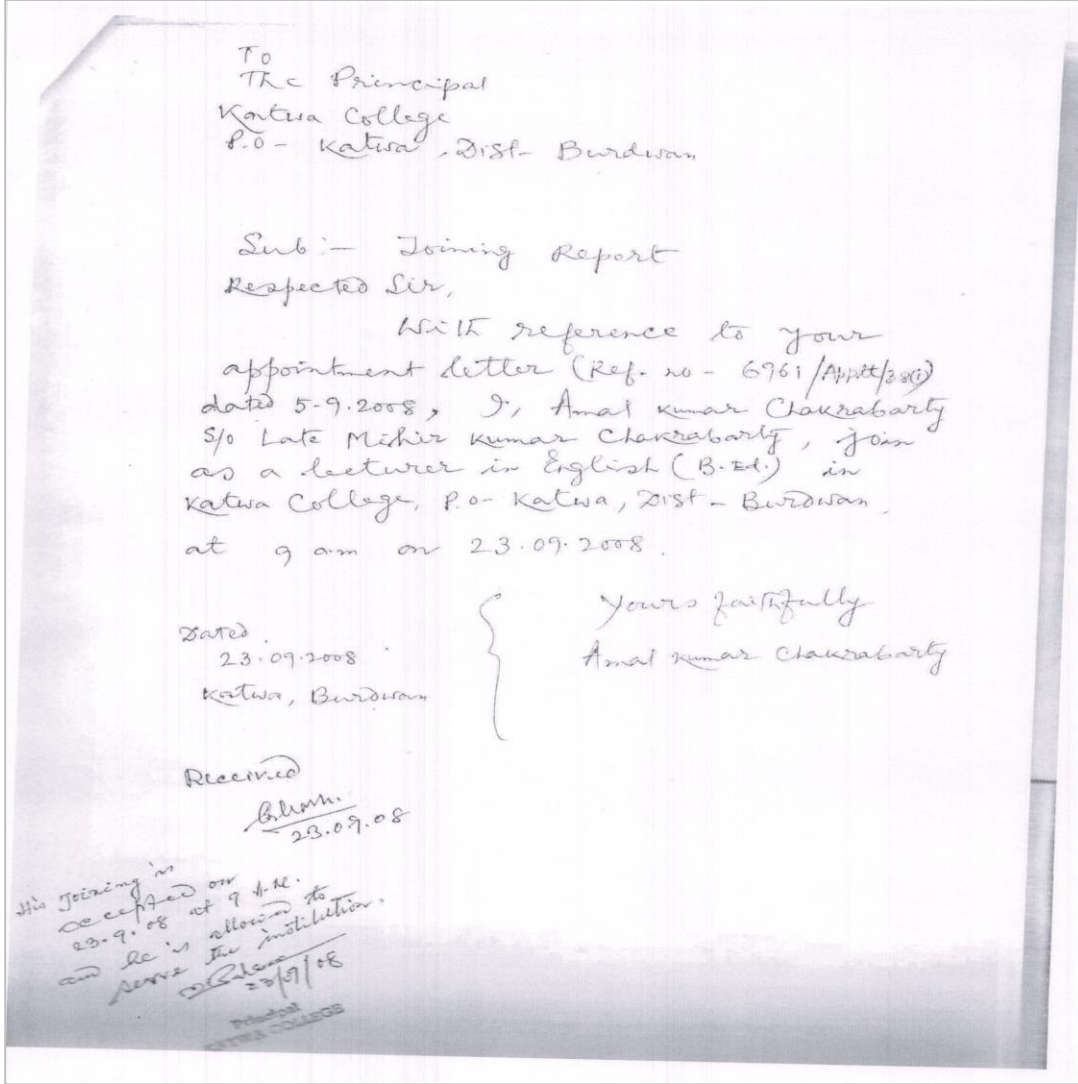 To
The Principal
Katwa College
P.O - Katwa, Dist- Burdwan
Sub:- Joining Report
Respected Sir,
With reference to your
appointment letter (Ref. no - 6961/Apptt/38(i)
dated 5-9.2008, I, Amal Kumar Chakrabarty
S/o Late Mihir Kumar Chakrabarty, join
as a lecturer in English (B.Ed.) in
Katwa College, P.O- Katwa, Dist- Burdwan,
at 9 a.m on 23.09.2008.
Yours faithfully
Amal Kumar Chakrabarty
Dated
23.09.2008
Katwa, Burdwan
Received
23.09.08
His Joining is
accepted on
23.9.08 at 9 A.M.
and he is allowed to
serve the institution.
23/9/08
Principal
KATWA COLLEGE